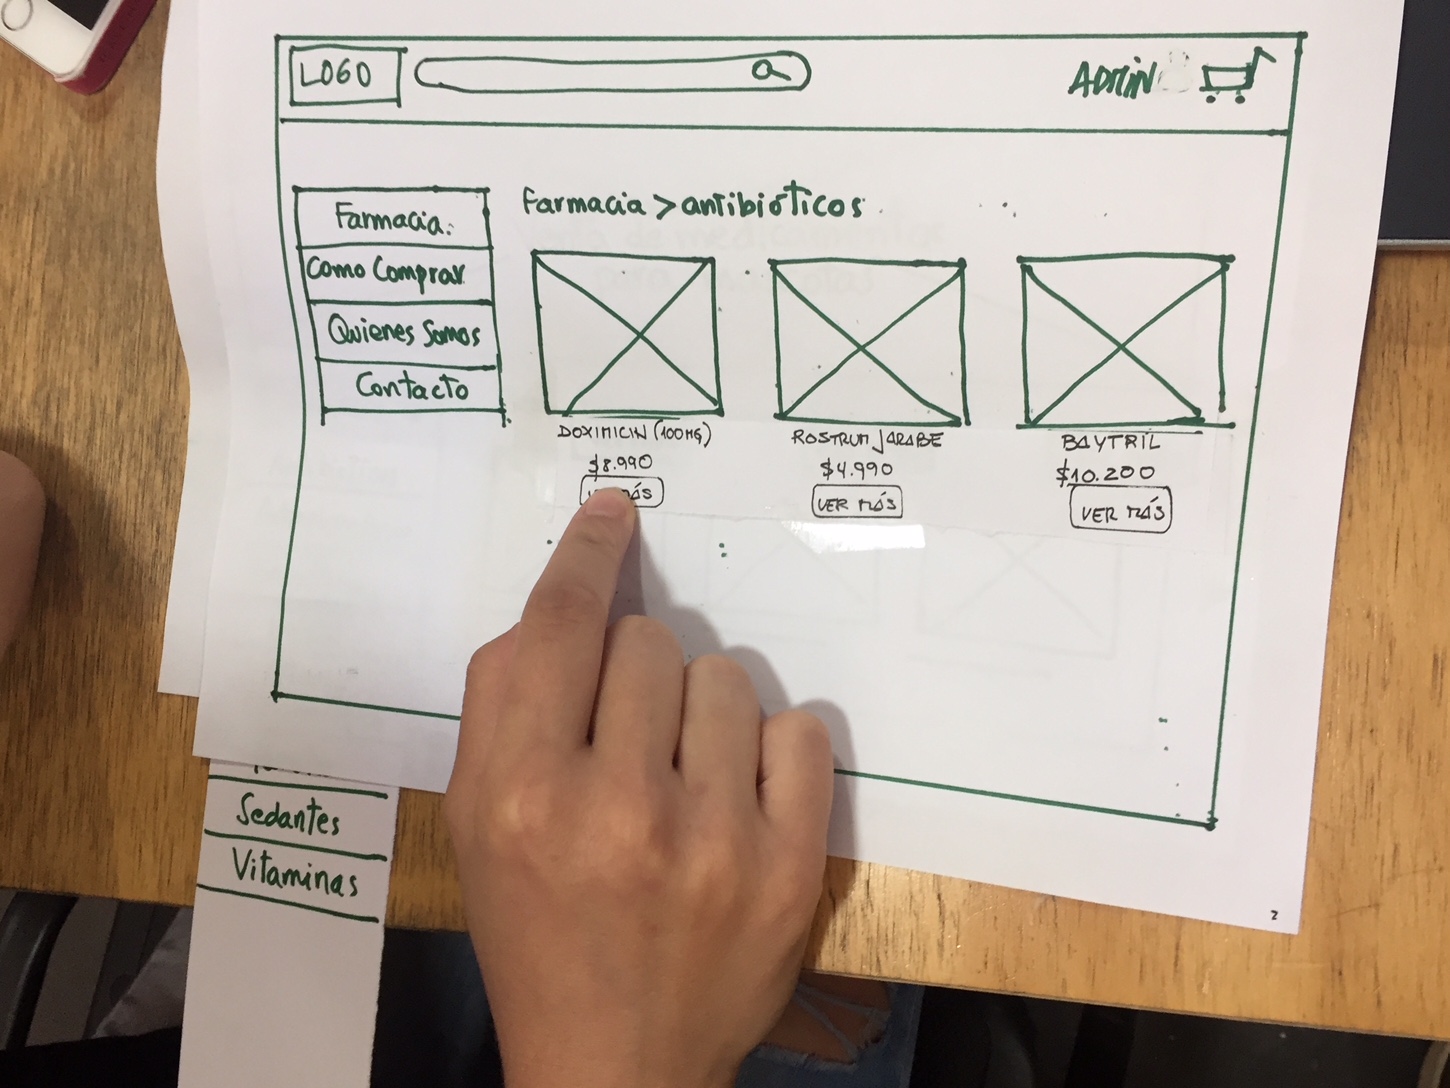 LOGO
ADMIN
Farmacia.
Como Comprar
Quienes Somos
Contacto
Farmacia > antibióticos
DOXIMICIN (100MG)
$8.990
ROSTRUM JARABE
$4.990
VER MÁS
BAYTRIL
$10.200
VER MÁS
Sedantes
Vitaminas
2